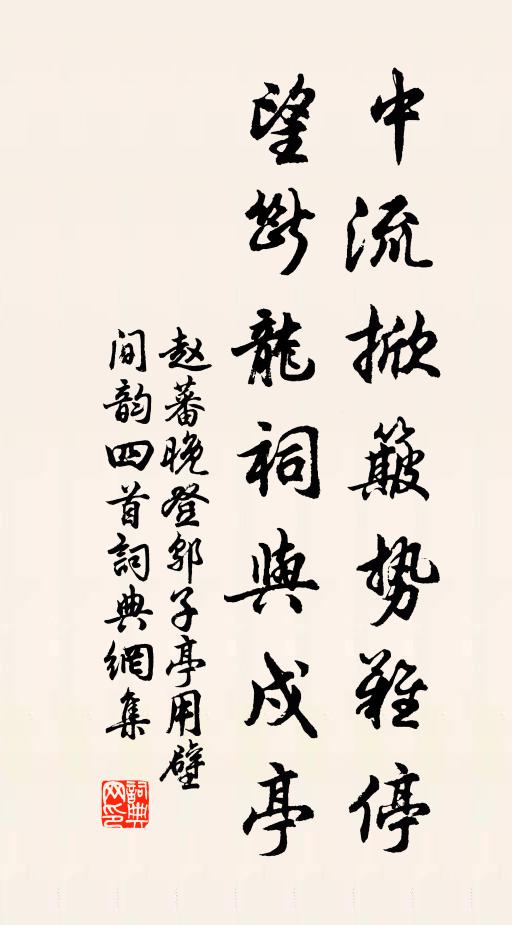 中流掀簸势难停
望断龍祠與戍亭
赵蕃晚登郭子亭用壁
间韵四首詞典網集
詞典网印